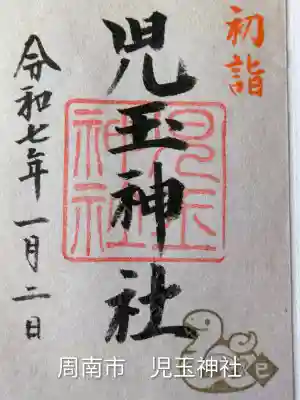 初詣
児玉神社
児玉神社
令和七年一月二日
巳
周南市　児玉神社